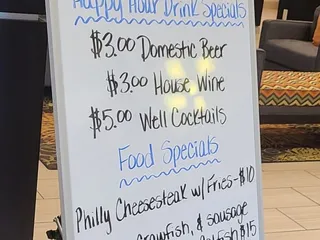 Happy Hour Drink Specials
$3.00 Domestic Beer
$3.00 House Wine
$5.00 Well Cocktails
Food Specials
Philly Cheesesteak w/Fries-$10
Crawfish, & sausage
$15